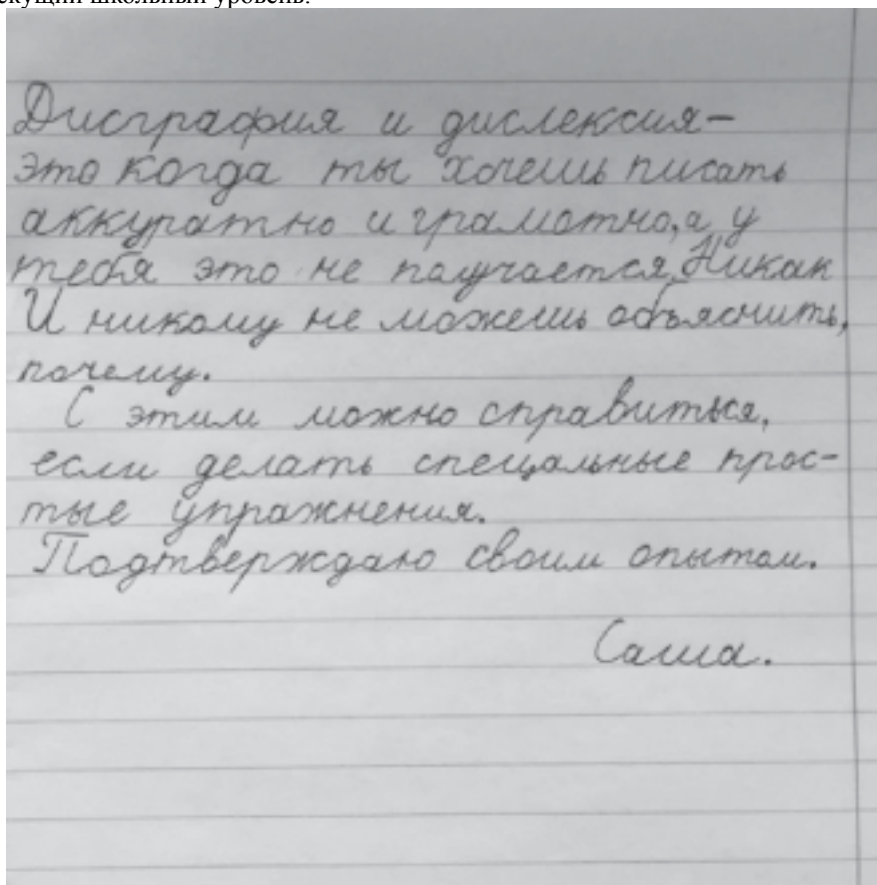 екущий школьный уровень.
Дисграфия и дислексия-
это когда ты хочешь писать
аккуратно и грамотно, а у
тебя это не палучается, Никак
И никому не можешь обяснить,
почему.
С этим можно справиться,
если делать спецальные прос-
тые упражнения.
Подтверждаю своим опытом.
Саша.